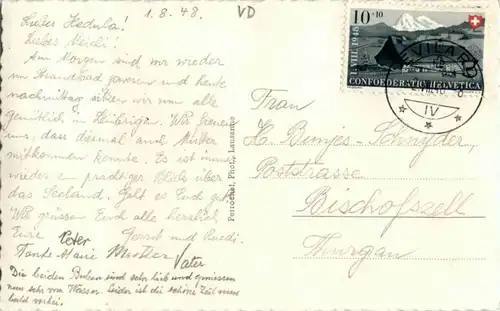 1.8.48.
VD
Liebes Hedula!
Liebes Heidi!
Am Morgen sind wir wieder
im Strandbad gewesen und heute
nachmittag sitzen wir nun alle
gemütlich in Wir freuen
uns, dass diesmal auch Mutter
mitkommen konnte. Es ist immer
wieder ein prächtiger Blick über
das Seeland. Geht es Euch gut?
Wir grüssen Euch alle herzlich
Eure Peter Gerrit und Ruedi.
Tante Marie Mutter Vater
Die beiden Buben sind sehr lieb und geniessen
nun sehr vom Wasser. Leider ist die schöne Zeit nun
bald vorbei.
Perrochet, Phot., Lausanne
10+10
I. VIII. 1948
CONFOEDERATIO HELVETICA
EVILARD
IV
Frau
H. Bünjes-Schnyder,
Poststrasse
Bischofszell
Thurgau